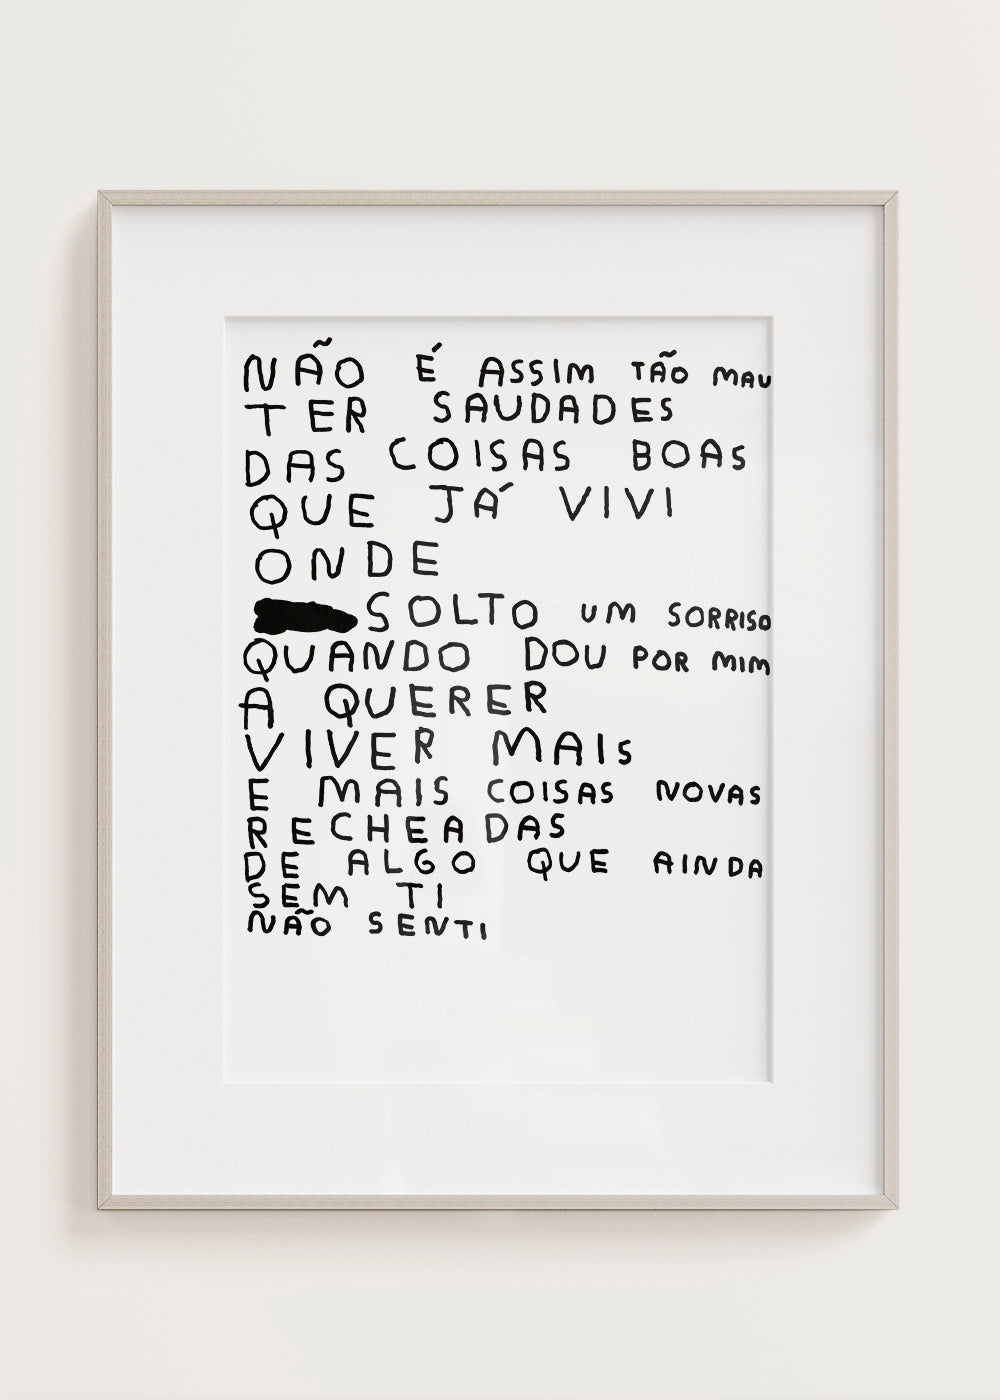 NÃO É ASSIM TÃO MAU
TER SAUDADES
DAS COISAS BOAS
QUE JÁ VIVI
ONDE
SOLTO UM SORRISO
QUANDO DOU POR MIM
A QUERER
VIVER MAIS
E MAIS COISAS NOVAS
RECHEADAS
DE ALGO QUE AINDA
SEM TI
NÃO SENTI